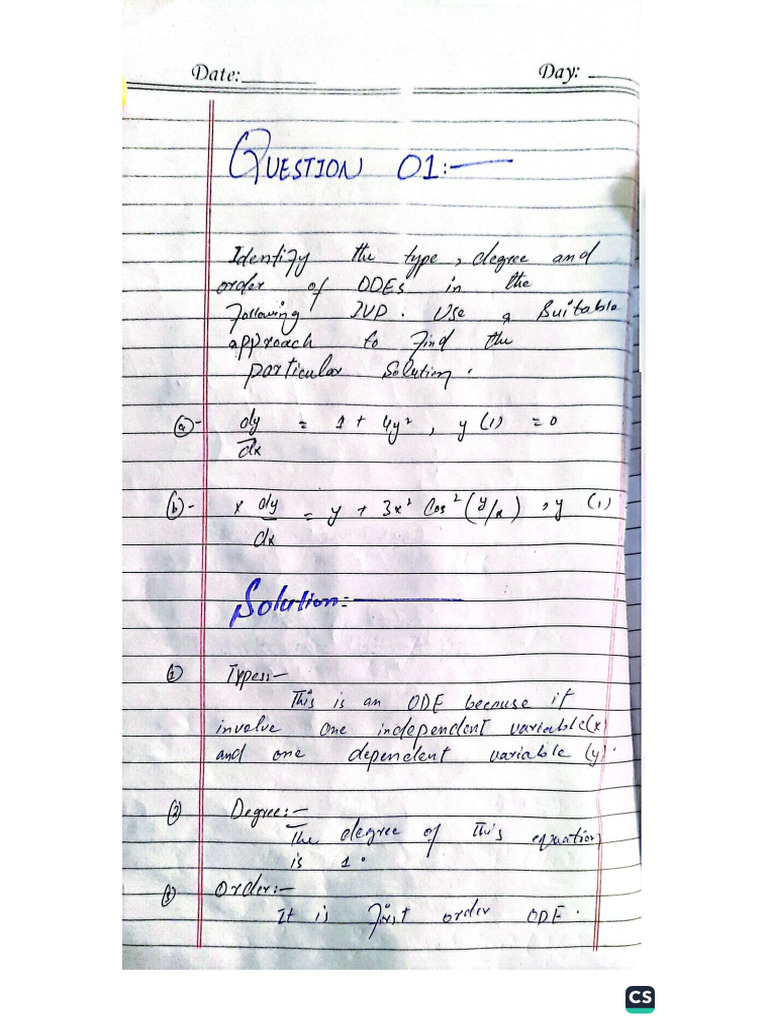 Date:________ Day: ____
QUESTION 01:-
Identify the type, degree and
order of ODEs in the
Following IVP. Use a Suitable
approach to Find the
particular Solution.
(a)- dy/dx = 1 + 4y², y(1) = 0
(b)- x dy/dx = y + 3x² Cos² (y/x), y (1)
Solution:-
(1) Type:-
This is an ODE because it
involve one independent variable(x)
and one dependent variable (y).
(2) Degree:-
The degree of This equation
is 1.
(3) Order:-
It is First order ODE.
CS